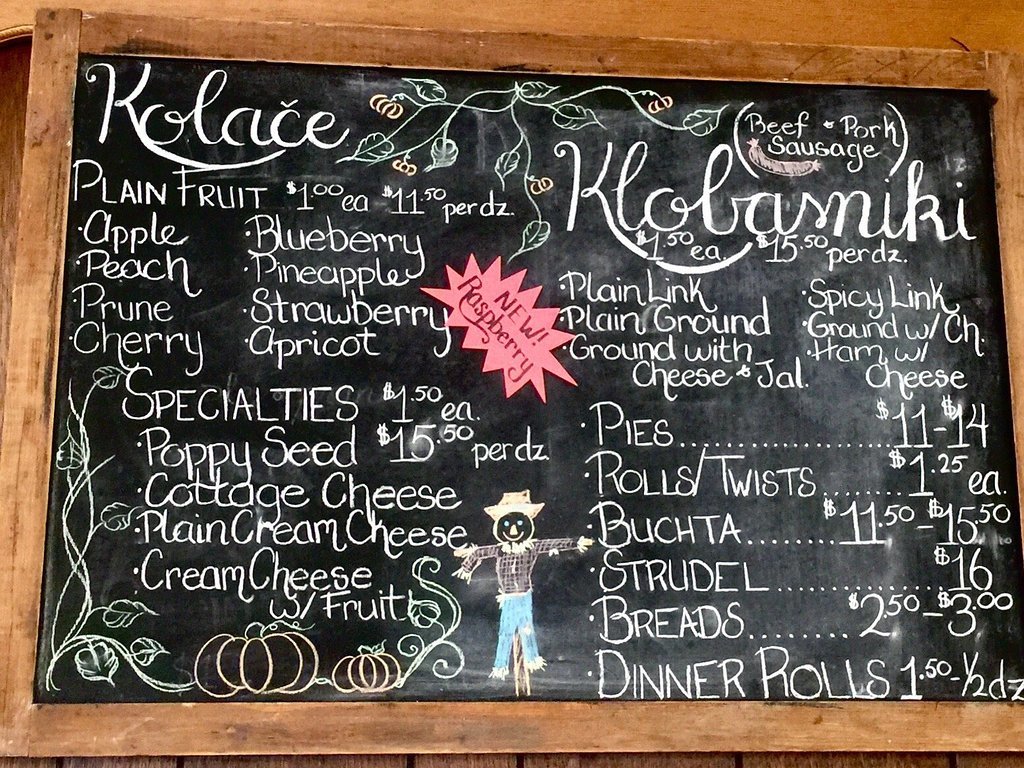 Kolače
PLAIN FRUIT $1.00 ea $11.50 per dz.
·Apple ·Blueberry
·Peach ·Pineapple
·Prune ·Strawberry
·Cherry ·Apricot
NEW!
Raspberry
SPECIALTIES $1.50 ea.
·Poppy Seed $15.50 per dz.
·Cottage Cheese
·Plain Cream Cheese
·Cream Cheese
w/ Fruit
(Beef & Pork
Sausage)
Klobasniki
$1.50 ea. $15.50 per dz.
·Plain Link ·Spicy Link
·Plain Ground ·Ground w/ Ch.
·Ground with ·Ham w/
Cheese & Jal. Cheese
·PIES.....................$11-$14
·ROLLS/TWISTS ........$1.25 ea.
·BUCHTA........$11.50-$15.50
·STRUDEL................$16
·BREADS.........$2.50-$3.00
·DINNER ROLLS 1.50-1/2 dz